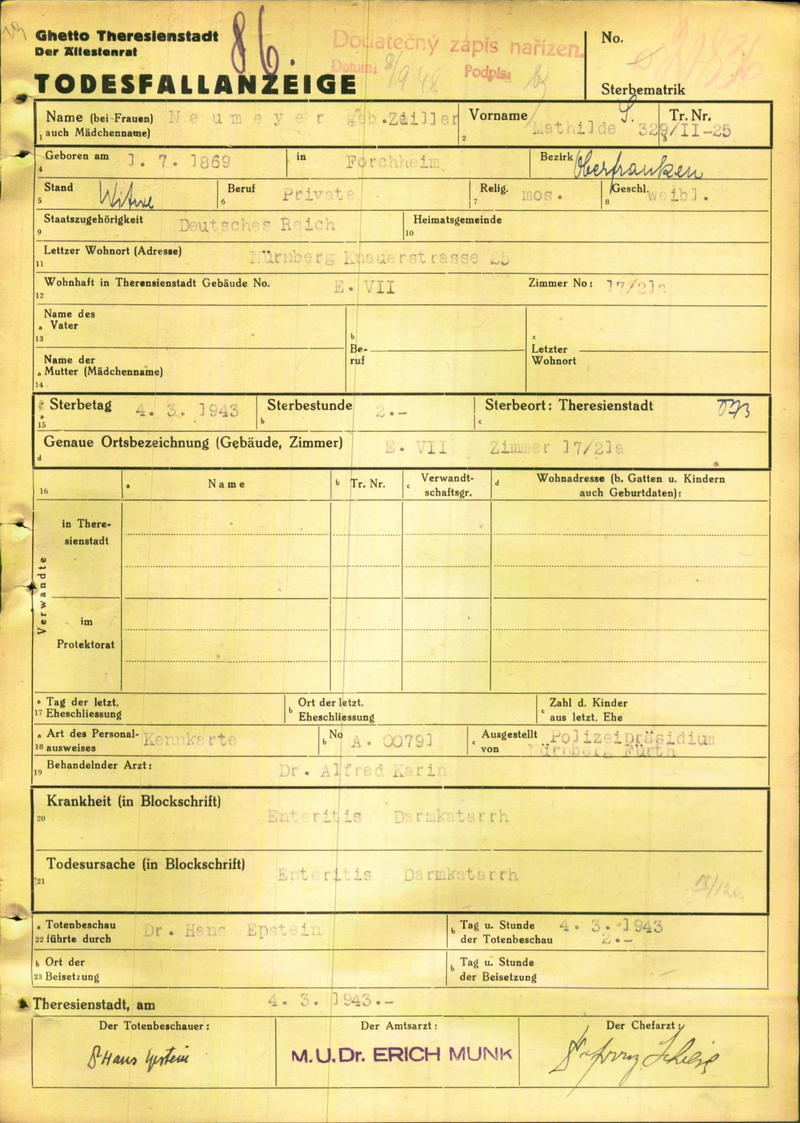 Ghetto Theresienstadt
Der Ältestenrat
TODESFALLANZEIGE
86.
Dodatečný zápis nařízen.
Datum: 8/1948 Podpis:
No.
Sterbematrik
Name (bei Frauen) Neumeyer geb. Ziller
1 auch Mädchenname)
Vorname S.
2 Mathilde
Tr. Nr.
328/II-25
4 Geboren am 1. 7. 1869 in Forchheim Bezirk Oberfranken
Stand Witwe
5
Beruf Private
6
Relig. mos.
7
Geschl. weibl.
8
Staatszugehörigkeit Deutsches Reich
9
Heimatsgemeinde
10
Lettzer Wohnort (Adresse) Nürnberg Knauerstrasse 25
11
Wohnhaft in Theresienstadt Gebäude No. E. VII Zimmer No: 17/21a
12
Name des
a Vater
13
Name der
a Mutter (Mädchenname)
14
b
Be-
ruf
c
Letzter
Wohnort
Sterbetag 4. 3. 1943
a
15
Sterbestunde 2.-
b
Sterbeort: Theresienstadt
c
Genaue Ortsbezeichnung (Gebäude, Zimmer) E. VII Zimmer 17/21a
d
16
a Name
b Tr. Nr.
c Verwandt-
schaftsgr.
d Wohnadresse (b. Gatten u. Kindern
auch Geburtdaten):
Verwandte
in There-
sienstadt
im
Protektorat
a Tag der letzt.
17 Eheschliessung
b Ort der letzt.
Eheschliessung
c Zahl d. Kinder
aus letzt. Ehe
a Art des Personal-
18 ausweises Kennkarte
b No A. 00791
c Ausgestellt Polizeipräsidium
von Nürnberg Fürth
Behandelnder Arzt: Dr. Alfred Karin
19
Krankheit (in Blockschrift)
20
Enteritis Darmkatarrh
Todesursache (in Blockschrift)
21
Enteritis Darmkatarrh
a Totenbeschau Dr. Hans Epstein
22 führte durch
b Tag u. Stunde 4. 3. 1943
der Totenbeschau 2.-
b Ort der
23 Beisetzung
b Tag u. Stunde
der Beisetzung
Theresienstadt, am 4. 3. 1943.-
Der Totenbeschauer:
Dr Hans Epstein
Der Amtsarzt:
M.U.Dr. ERICH MUNK
Der Chefarzt: